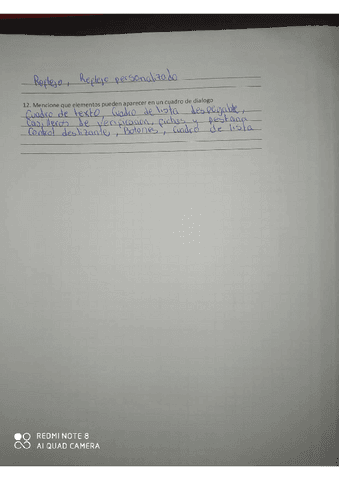 Reflejo, Reflejo personalizado
12. Mencione que elementos pueden aparecer en un cuadro de dialogo
Cuadro de texto, cuadro de lista desplegable,
Casilleros de verificacion, fichas y pestaña
Control deslizante, Botones, cuadro de lista
REDMI NOTE 8
AI QUAD CAMERA